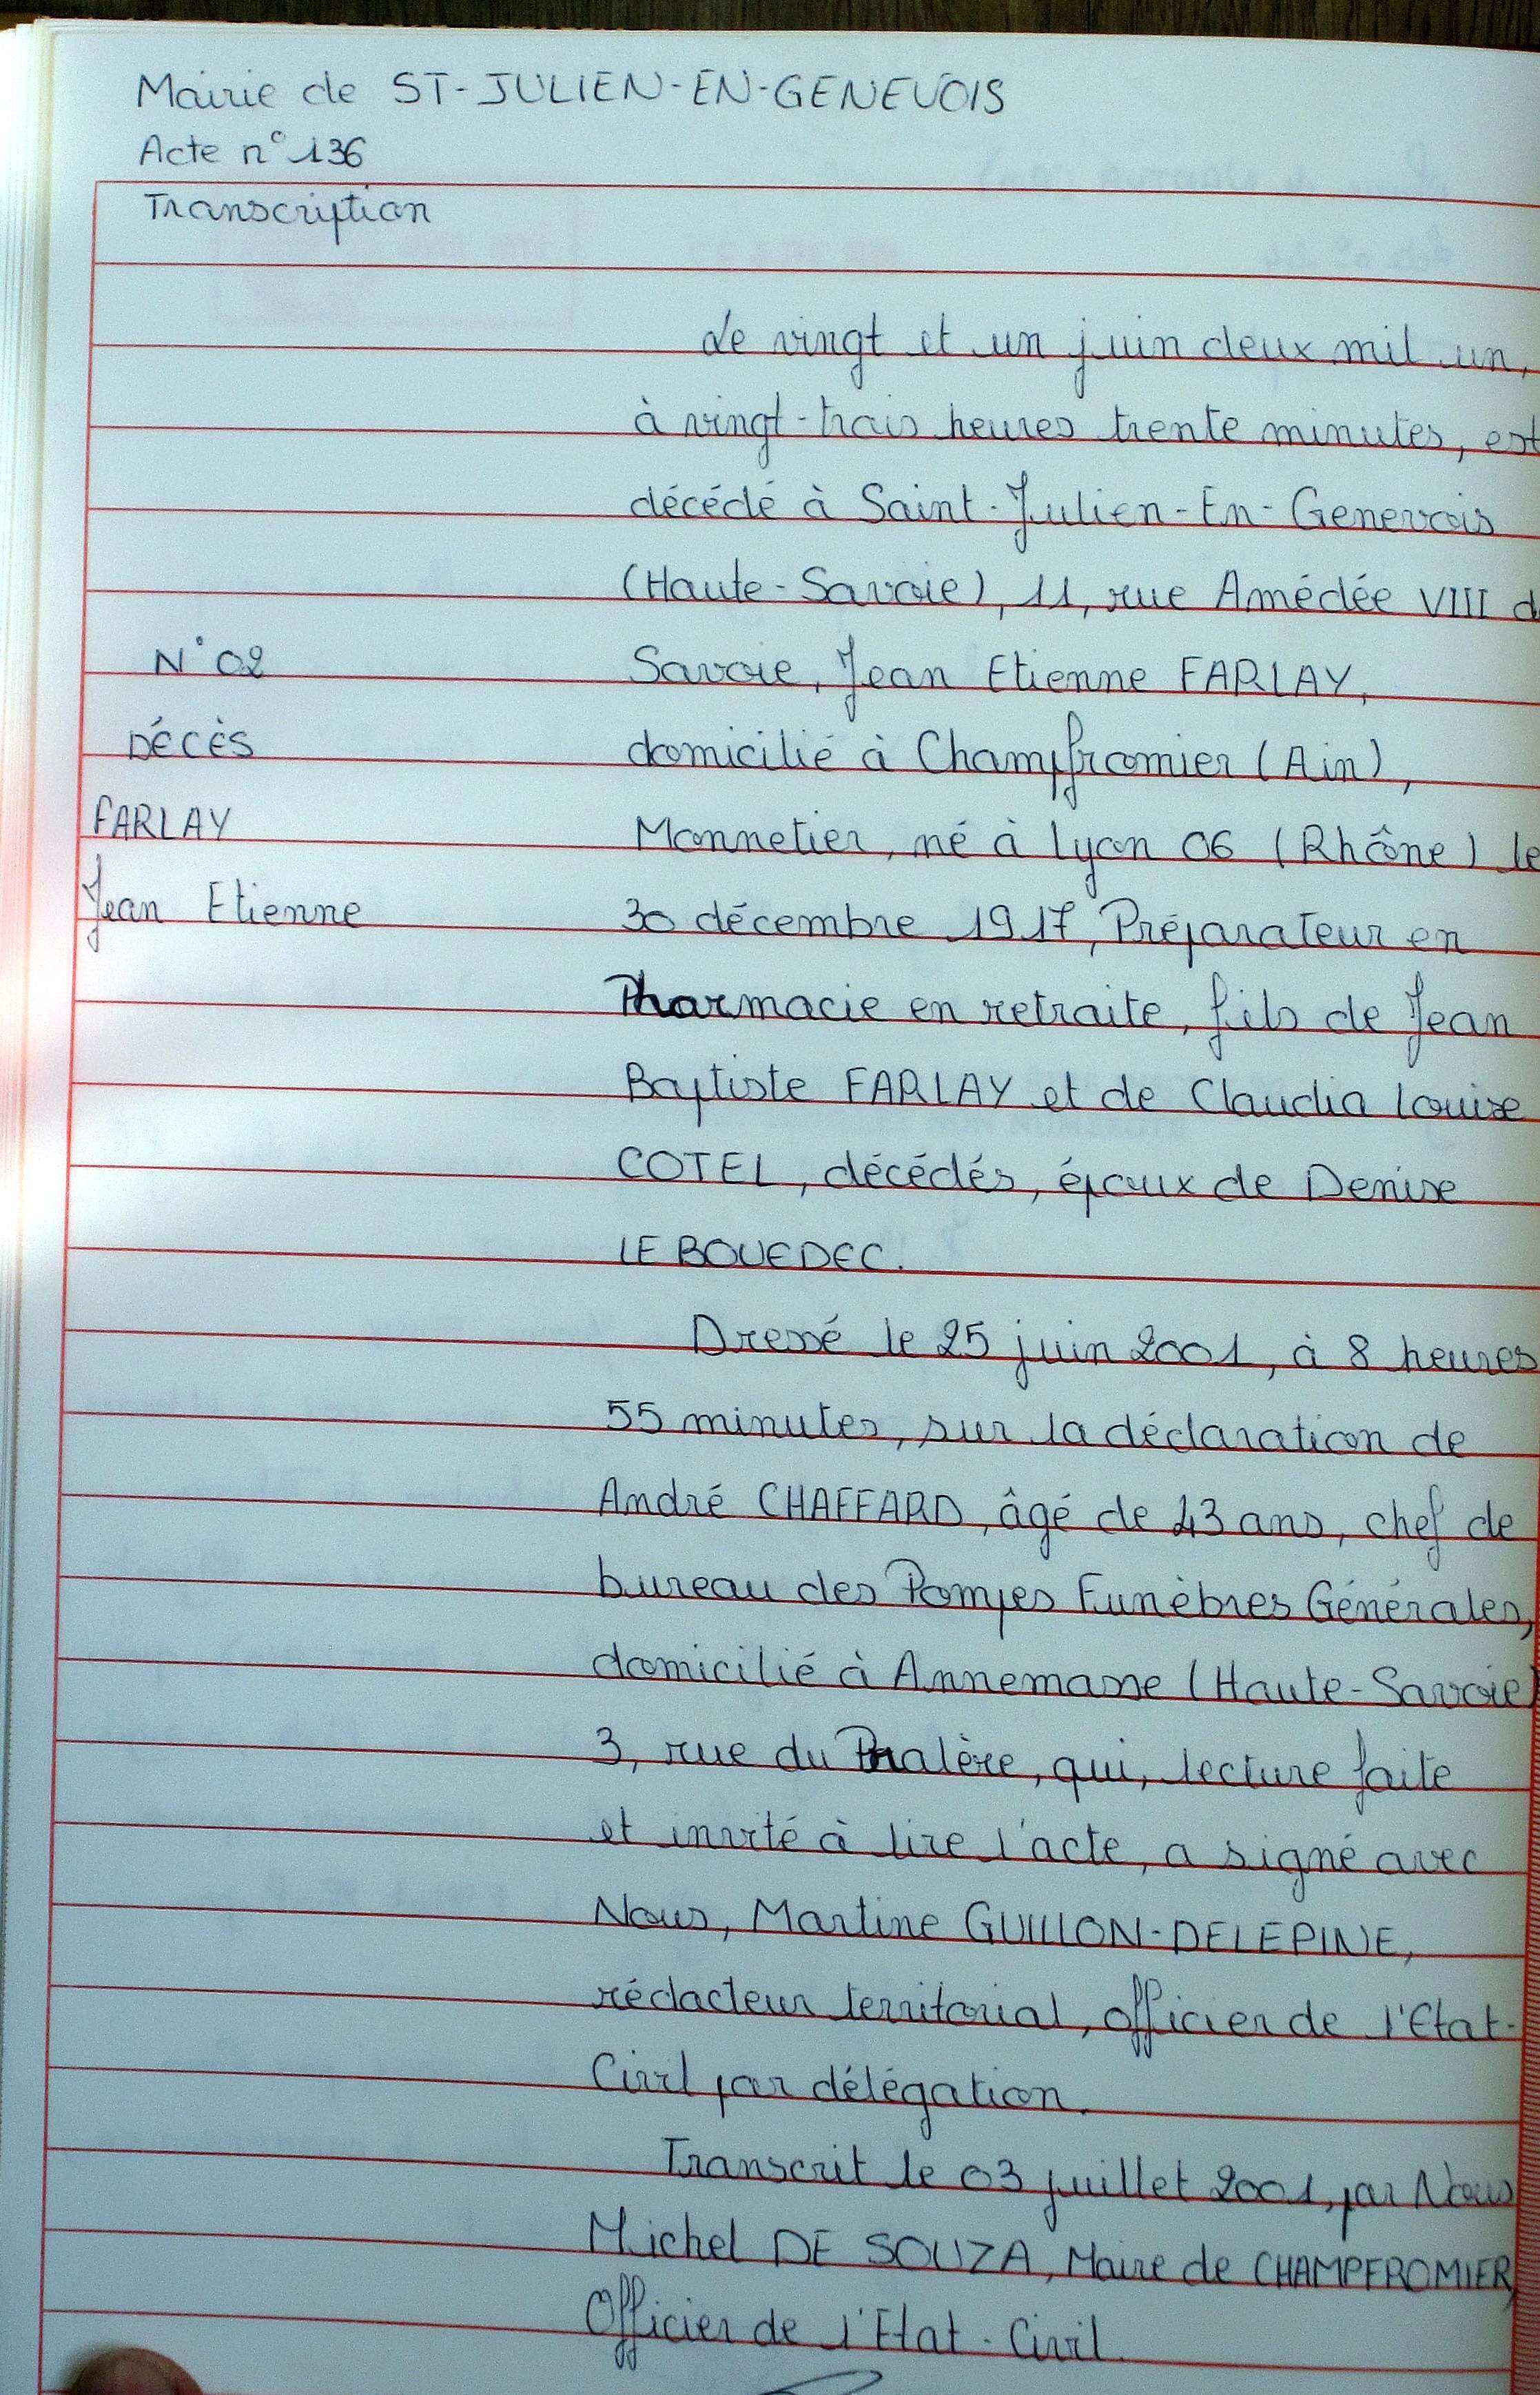 Mairie de ST-JULIEN-EN-GENEVOIS
Acte n° 136
Transcription
Le vingt et un juin deux mil un,
à vingt-trois heures trente minutes, est
décédé à Saint-Julien-En-Genevois
(Haute-Savoie), 11, rue Amédée VIII d
N° 02
Savoie, Jean Etienne FARLAY,
DÉCÈS
domicilié à Champfromier (Ain),
FARLAY
Monnetier, né à Lyon 06 (Rhône) le
Jean Etienne
30 décembre 1917, Préparateur en
Pharmacie en retraite, fils de Jean
Baptiste FARLAY et de Claudia Louise
COTEL, décédés, époux de Denise
LE BOUEDEC.
Dressé le 25 juin 2001, à 8 heures
55 minutes, sur la déclaration de
André CHAFFARD, âgé de 43 ans, chef de
bureau des Pompes Funèbres Générales,
domicilié à Annemasse (Haute-Savoie)
3, rue du Phalère, qui, lecture faite
et invité à lire l'acte, a signé avec
Nous, Martine GUILLON-DELEPINE,
rédacteur territorial, officier de l'Etat-
Civil par délégation.
Transcrit le 03 juillet 2001, par Nous
Michel DE SOUZA, Maire de CHAMPFROMIER,
Officier de l'Etat-Civil.